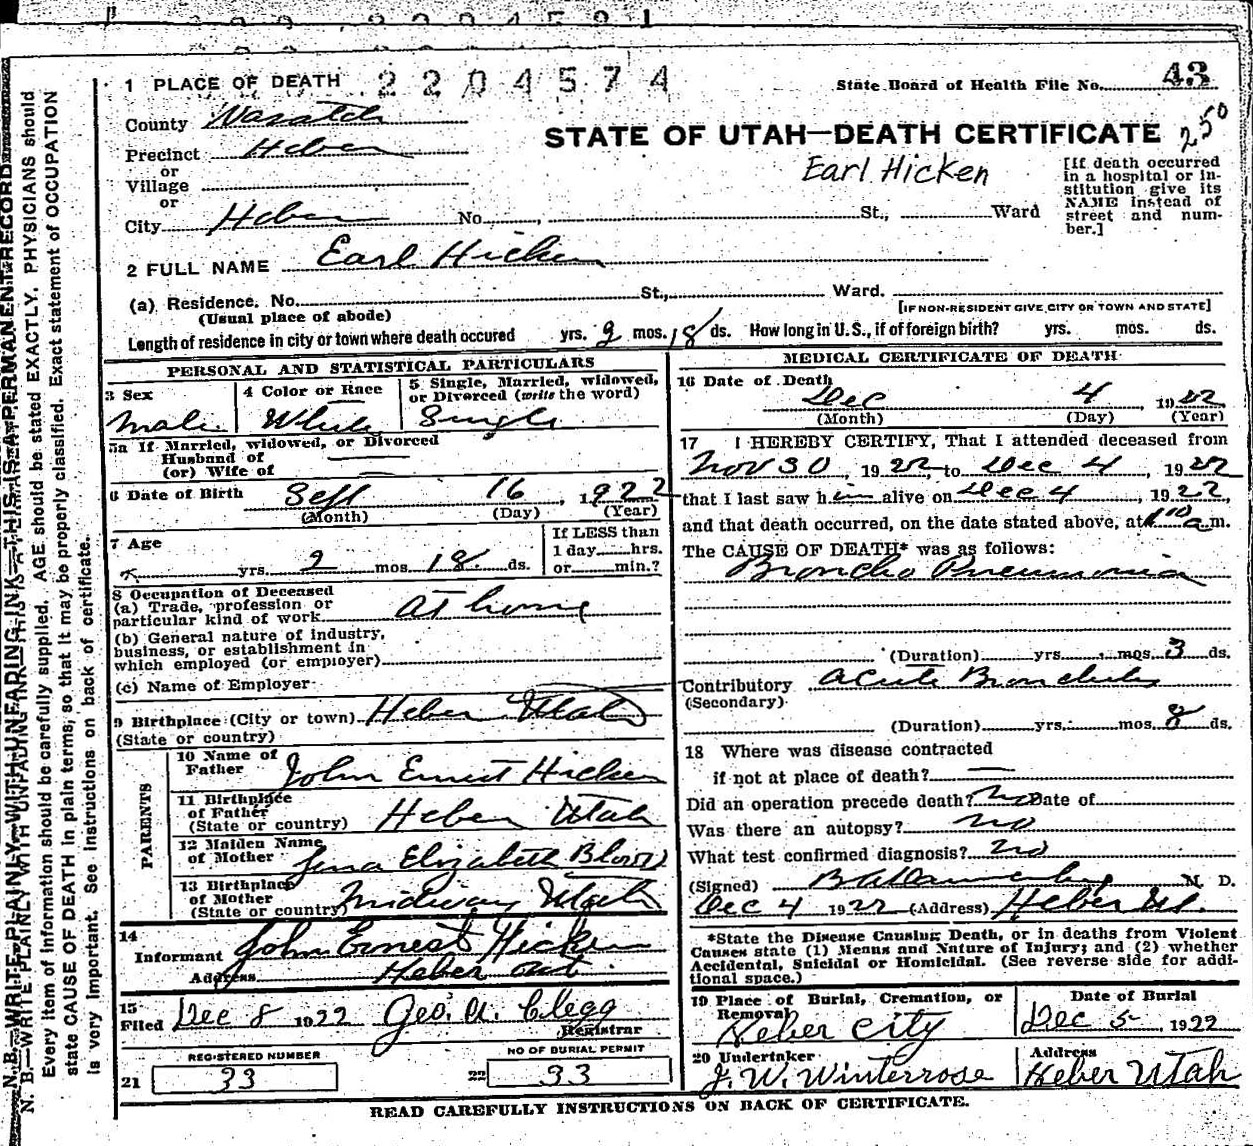 1 PLACE OF DEATH 2204574 State Board of Health File No. 43
County Wasatch
STATE OF UTAH—DEATH CERTIFICATE 250
Precinct Heber
or
Village
or
Earl Hicken
[If death occurred
in a hospital or in-
stitution give its
NAME instead of
street and num-
ber.]
City Heber No. , St., Ward
2 FULL NAME Earl Hicken
(a) Residence. No. St., Ward.
(Usual place of abode) [IF NON-RESIDENT GIVE CITY OR TOWN AND STATE]
Length of residence in city or town where death occured yrs. 2 mos. 18 ds. How long in U.S., if of foreign birth? yrs. mos. ds.
PERSONAL AND STATISTICAL PARTICULARS
3 Sex
Male
4 Color or Race
White
5 Single, Married, widowed,
or Divorced (write the word)
Single
5a If Married, widowed, or Divorced
Husband of
(or) Wife of
6 Date of Birth Sept 16, 1922
(Month) (Day) (Year)
7 Age
yrs. 2 mos. 18 ds.
If LESS than
1 day hrs.
or min.?
8 Occupation of Deceased
(a) Trade, profession or
particular kind of work At home
(b) General nature of industry,
business, or establishment in
which employed (or employer)
(c) Name of Employer
9 Birthplace (City or town) Heber Utah
(State or country)
PARENTS
10 Name of
Father John Ernest Hicken
11 Birthplace
of Father
(State or country) Heber Utah
12 Maiden Name
of Mother Elizabeth
13 Birthplace
of Mother
(State or country) Midway Utah
14
Informant John Ernest Hicken
Address Heber Ut.
15
Filed Dec 8 1922 Geo. A. Clegg
Registrar
REGISTERED NUMBER NO OF BURIAL PERMIT
21 33 22 33
MEDICAL CERTIFICATE OF DEATH
16 Date of Death
Dec 4, 1922
(Month) (Day) (Year)
17 I HEREBY CERTIFY, That I attended deceased from
Nov 30, 1922, to Dec 4, 1922
that I last saw him alive on Dec 4, 1922,
and that death occurred, on the date stated above, at 1 10 a m.
The CAUSE OF DEATH* was as follows:
Broncho Pneumonia
(Duration) yrs. mos. 3 ds.
Contributory Acute Bronchitis
(Secondary)
(Duration) yrs. mos. 8 ds.
18 Where was disease contracted
if not at place of death? —
Did an operation precede death? No Date of
Was there an autopsy? no
What test confirmed diagnosis? no
(Signed) M. D.
Dec 4 1922 (Address) Heber Ut.
*State the Disease Causing Death, or in deaths from Violent
Causes state (1) Means and Nature of Injury; and (2) whether
Accidental, Suicidal or Homicidal. (See reverse side for addi-
tional space.)
19 Place of Burial, Cremation, or
Removal
Heber City
Date of Burial
Dec 5, 1922
20 Undertaker
J. W. Winterrose
Address
Heber Utah
READ CAREFULLY INSTRUCTIONS ON BACK OF CERTIFICATE.
N. B.—WRITE PLAINLY WITH UNFADING INK—THIS IS A PERMANENT RECORD
Every item of information should be carefully supplied. AGE should be stated EXACTLY. PHYSICIANS should
state CAUSE OF DEATH in plain terms, so that it may be properly classified. Exact statement of OCCUPATION
is very important. See instructions on back of certificate.